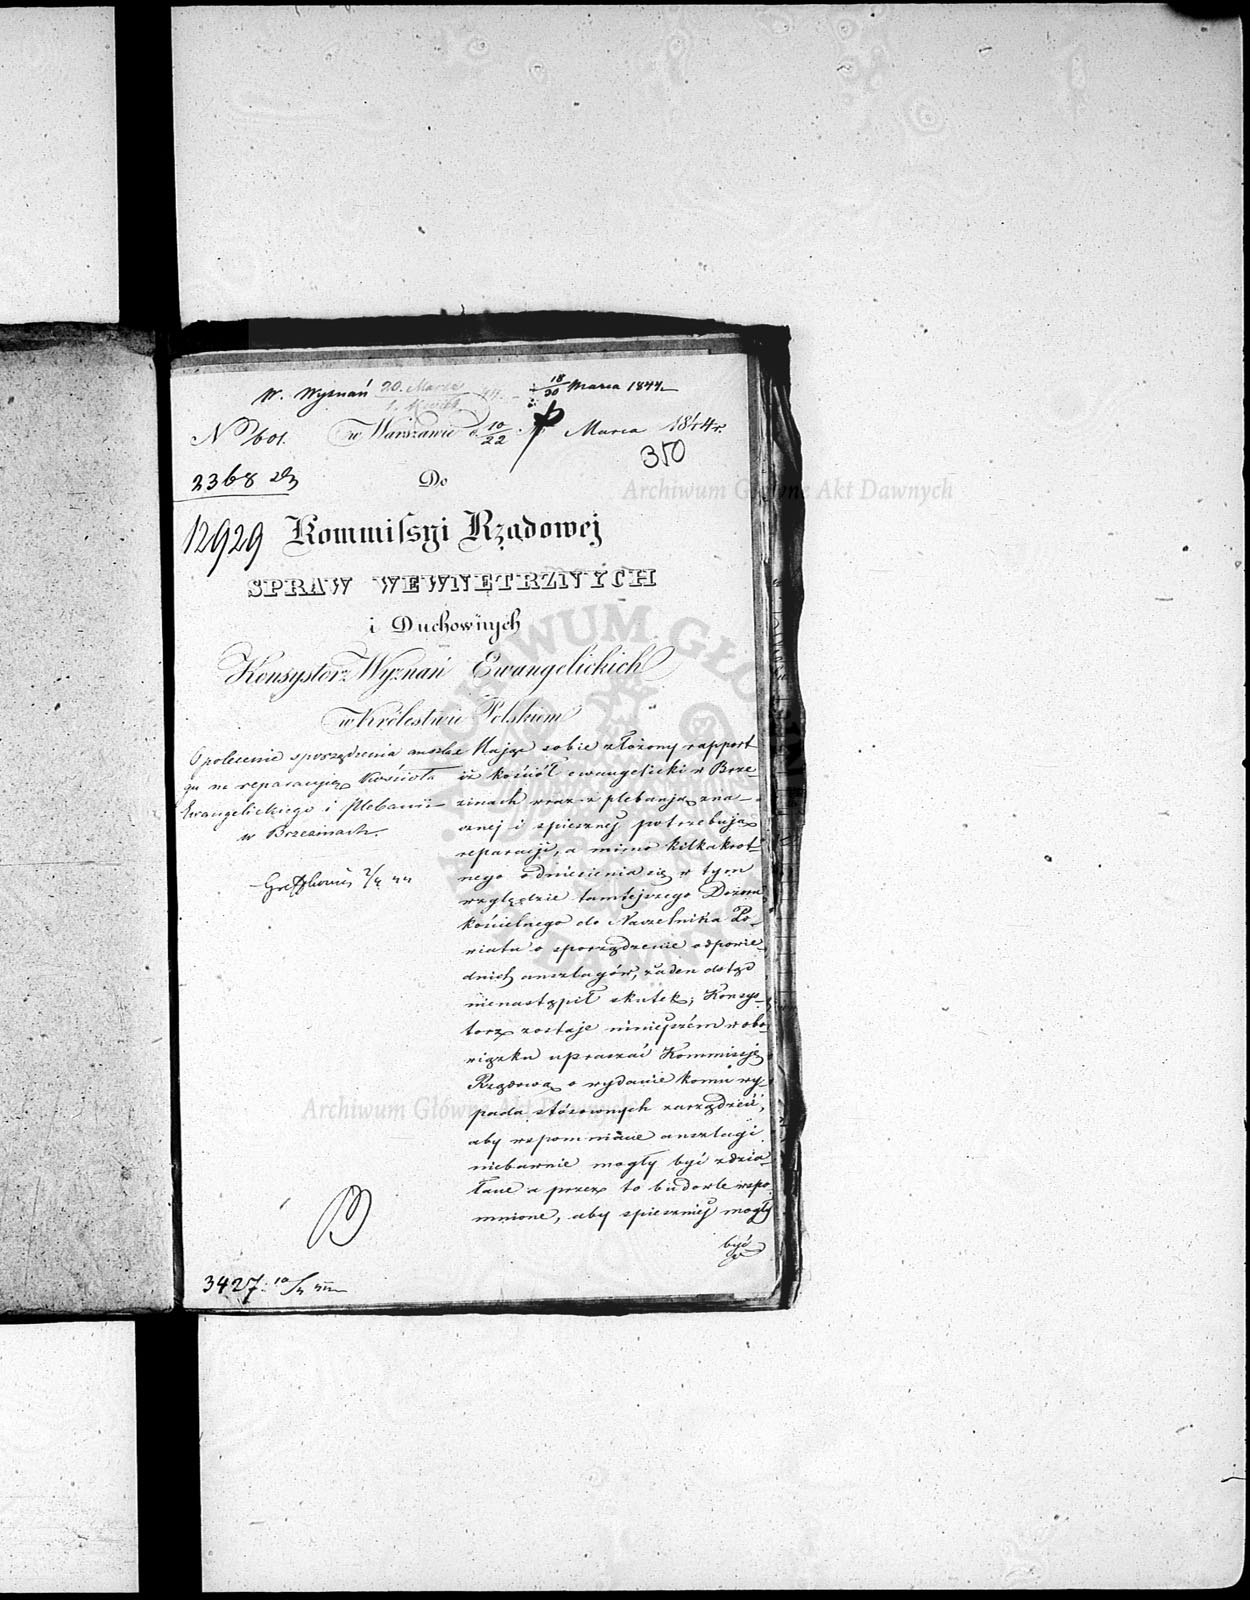 W. Wyznań 20. Marca 44. 18/30 Marca 1844
N° 601. w Warszawie d. 10/22 Marca 1844 r.
350
2368
Do
12929 Kommissyi Rządowej
SPRAW WEWNĘTRZNYCH
i Duchownych
Konsystorz Wyznań Ewangelickich
w Królestwie Polskiem
O polecenie sporządzenia anszla-
gu na reparacyią Kościoła
Ewangelickiego i Plebanii
w Brzezinach.
Mając sobie złożony rapport
iż kościół ewangelicki w Brze-
zinach wraz z plebanją zna-
cznej i spiesznej potrzebują
reparacji, a mimo kilkakrot-
nego odniesienia się w tym
względzie tamtejszego Dozoru
kościelnego do Naczelnika Po-
wiatu o sporządzenie odpowie-
dnich anszlagów, żaden dotąd
nienastąpił skutek; Konsys-
torz zostaje niniejszém w obo-
wiązku upraszać Kommissję
Rządową o wydanie komu wy-
pada stósownych zarządzeń,
aby wspomniane anszlagi
niebawnie mogły być zdzia-
łane a przez to budowle wspo-
mnione, aby spieszniej mogły
być
3427. 10/4 44
Archiwum Główne Akt Dawnych
Archiwum Główne Akt Dawnych
ARCHIWUM GŁÓWNE AKT DAWNYCH